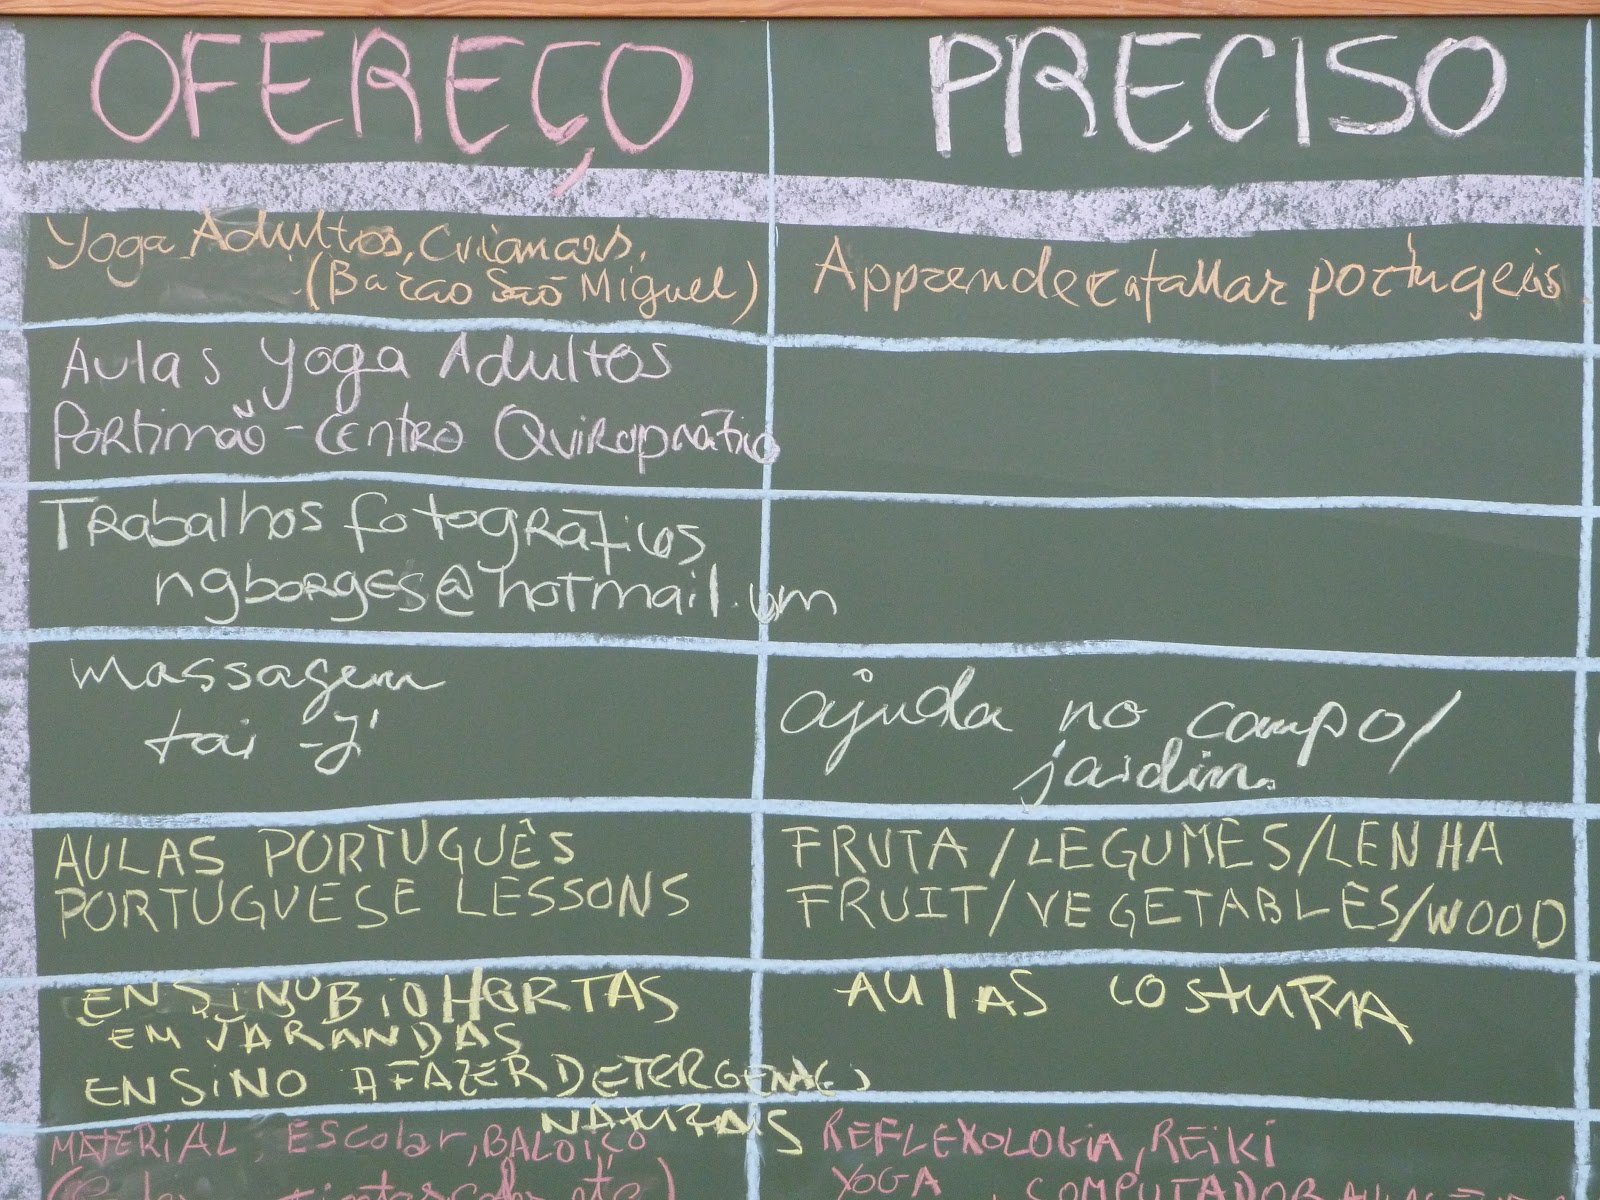 OFEREÇO PRECISO
Yoga Adultos, Crianças,
(Barão São Miguel)
Apprender a fallar portugeis
Aulas Yoga Adultos
Portimão - Centro Quiropráti
Trabalhos fotográficos
ngborges@hotmail.com
massagem
tai - ji
ajuda no campo/
jardin.
AULAS PORTUGUÊS
PORTUGUESE LESSONS
FRUTA/LEGUMES/LENHA
FRUIT/VEGETABLES/WOOD
ENSINO BIOHORTAS
EM JARANDAS
ENSINO A FAZER DETERGENTES
NATURAIS
AULAS COSTURA
MATERIAL ESCOLAR, BALOIÇO
etc)
REFLEXOLOGIA, REIKI
YOGA, COMPUTADOR